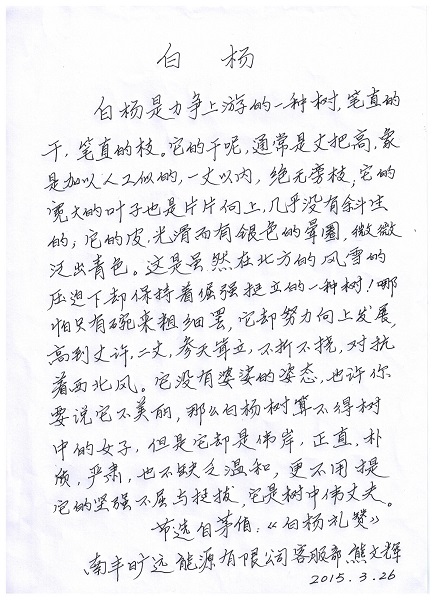 白杨
白杨是力争上游的一种树,笔直的
干,笔直的枝。它的干呢,通常是丈把高,象
是加以人工似的,一丈以内,绝无旁枝;它的
宽大的叶子也是片片向上,几乎没有斜生
的;它的皮,光滑而有银色的晕圈,微微
泛出青色。这是虽然在北方的风雪的
压迫下却保持着倔强挺立的一种树!哪
怕只有碗来粗细罢,它却努力向上发展,
高到丈许,二丈,参天耸立,不折不挠,对抗
着西北风。它没有婆娑的姿态,也许你
要说它不美丽,那么白杨树算不得树
中的女子,但是它却是伟岸,正直,朴
质,严肃,也不缺乏温和,更不用提
它的坚强不屈与挺拔,它是树中伟丈夫。
节选自茅盾:《白杨礼赞》
南丰旷远能源有限公司客服部 熊文辉
2015.3.26